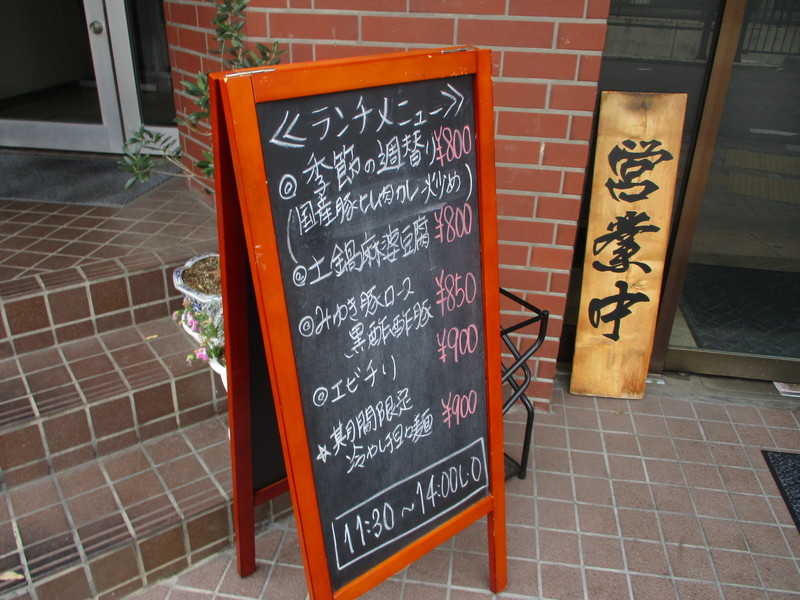 ≪ランチメニュー≫
◎季節の週替り ¥800
(国産豚ヒレ肉カレー炒め)
◎土鍋麻婆豆腐 ¥800
◎みゆき豚ロース ¥850
黒酢酢豚
◎エビチリ ¥900
☆期間限定 ¥900
冷やし担々麺
11:30～14:00L.O
営業中